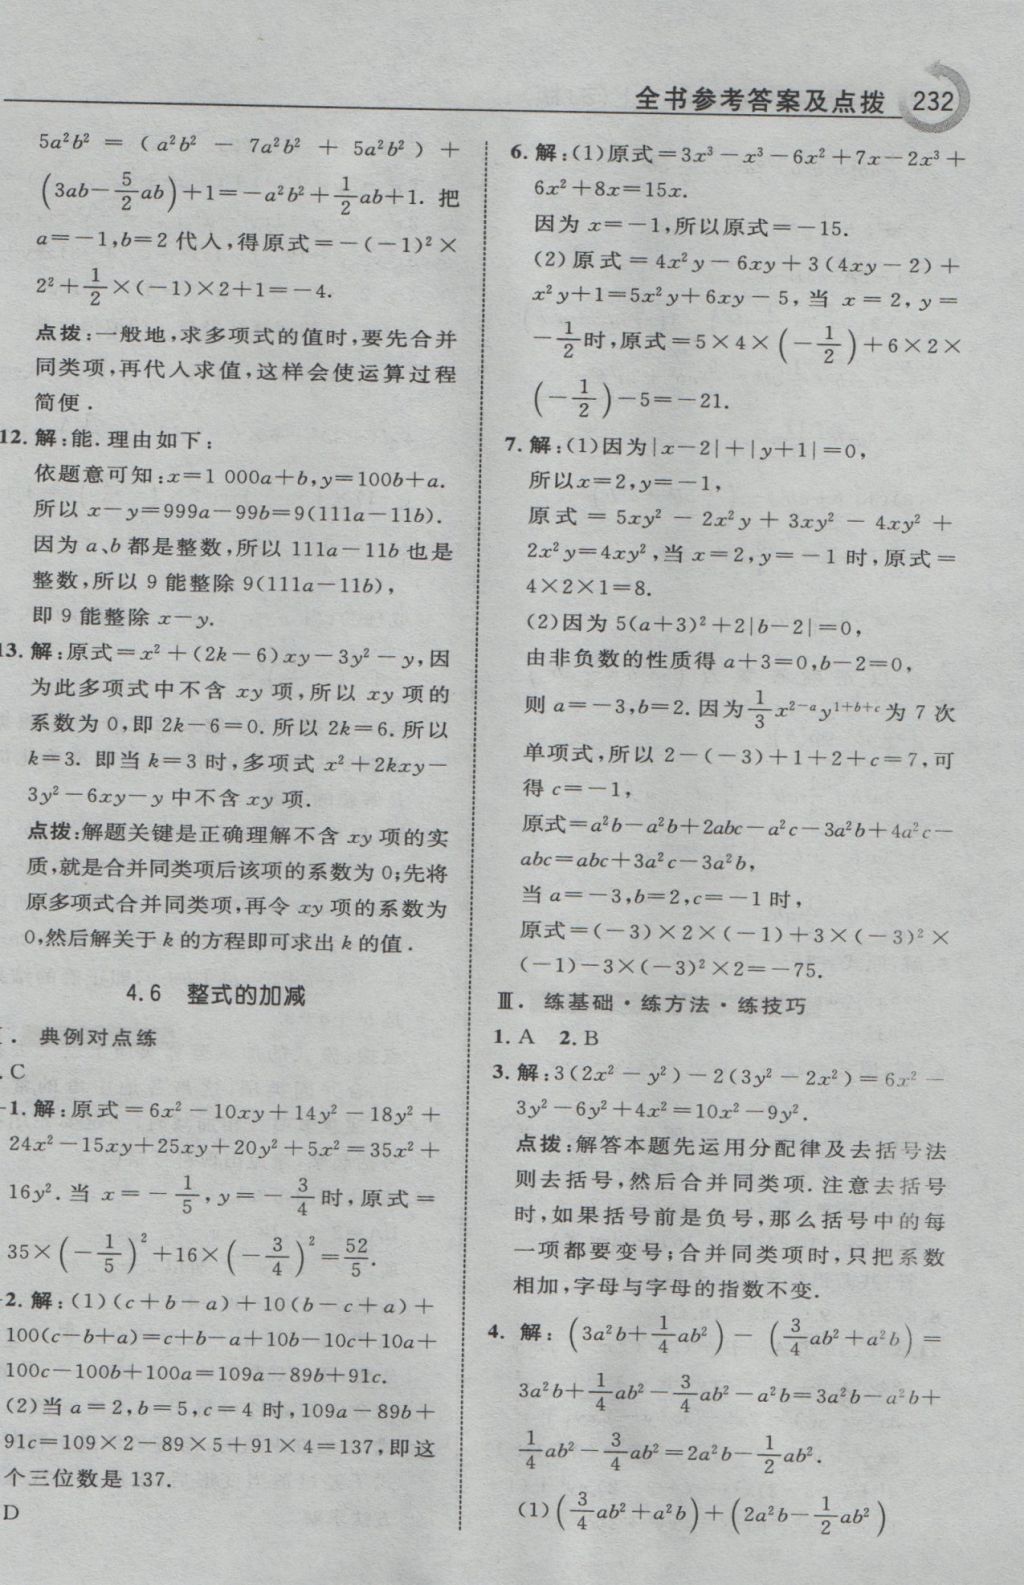 全书参考答案及点拨 232
5a²b² = (a²b² - 7a²b² + 5a²b²) +
(3ab-5/2ab)+1=-a²b²+1/2ab+1. 把
a=-1,b=2代入,得原式=-(-1)²×
2²+1/2×(-1)×2+1=-4.
点拨:一般地,求多项式的值时,要先合并
同类项,再代入求值,这样会使运算过程
简便.
12.解:能.理由如下:
依题意可知:x=1 000a+b,y=100b+a.
所以 x-y=999a-99b=9(111a-11b).
因为a、b都是整数,所以111a-11b也是
整数,所以9能整除9(111a-11b),
即9能整除x-y.
13.解:原式=x²+(2k-6)xy-3y²-y,因
为此多项式中不含xy项,所以xy项的
系数为0,即2k-6=0.所以2k=6.所以
k=3. 即当k=3时,多项式x²+2kxy-
3y²-6xy-y中不含xy项.
点拨:解题关键是正确理解不含xy项的实
质,就是合并同类项后该项的系数为0;先将
原多项式合并同类项,再令xy项的系数为
0,然后解关于k的方程即可求出k的值.
4.6 整式的加减
. 典例对点练
.C
-1.解:原式=6x²-10xy+14y²-18y²+
24x²-15xy+25xy+20y²+5x²=35x²+
16y².当x=-1/5,y=-3/4时,原式=
35×(-1/5)²+16×(-3/4)²=52/5.
-2.解:(1)(c+b-a)+10(b-c+a)+
100(c-b+a)=c+b-a+10b-10c+10a+
100c-100b+100a=109a-89b+91c.
(2)当a=2,b=5,c=4时,109a-89b+
91c=109×2-89×5+91×4=137,即这
个三位数是137.
D
6.解:(1)原式=3x³-x³-6x²+7x-2x³+
6x²+8x=15x.
因为x=-1,所以原式=-15.
(2)原式=4x²y-6xy+3(4xy-2)+
x²y+1=5x²y+6xy-5,当x=2,y=
-1/2时,原式=5×4×(-1/2)+6×2×
(-1/2)-5=-21.
7.解:(1)因为|x-2|+|y+1|=0,
所以x=2,y=-1,
原式=5xy²-2x²y+3xy²-4xy²+
2x²y=4xy²,当x=2,y=-1时,原式=
4×2×1=8.
(2)因为5(a+3)²+2|b-2|=0,
由非负数的性质得a+3=0,b-2=0,
则a=-3,b=2.因为1/3x²⁻ᵃy¹⁺ᵇ⁺ᶜ为7次
单项式,所以2-(-3)+1+2+c=7,可
得c=-1,
原式=a²b-a²b+2abc-a²c-3a²b+4a²c-
abc=abc+3a²c-3a²b,
当a=-3,b=2,c=-1时,
原式=(-3)×2×(-1)+3×(-3)²×
(-1)-3×(-3)²×2=-75.
Ⅲ. 练基础·练方法·练技巧
1.A 2.B
3.解:3(2x²-y²)-2(3y²-2x²)=6x²-
3y²-6y²+4x²=10x²-9y².
点拨:解答本题先运用分配律及去括号法
则去括号,然后合并同类项.注意去括号
时,如果括号前是负号,那么括号中的每
一项都要变号;合并同类项时,只把系数
相加,字母与字母的指数不变.
4. 解: (3a²b+1/4ab²)-(3/4ab²+a²b)=
3a²b+1/4ab²-3/4ab²-a²b=3a²b-a²b+
1/4ab²-3/4ab²=2a²b-1/2ab².
(1)(3/4ab²+a²b)+(2a²b-1/2ab²)